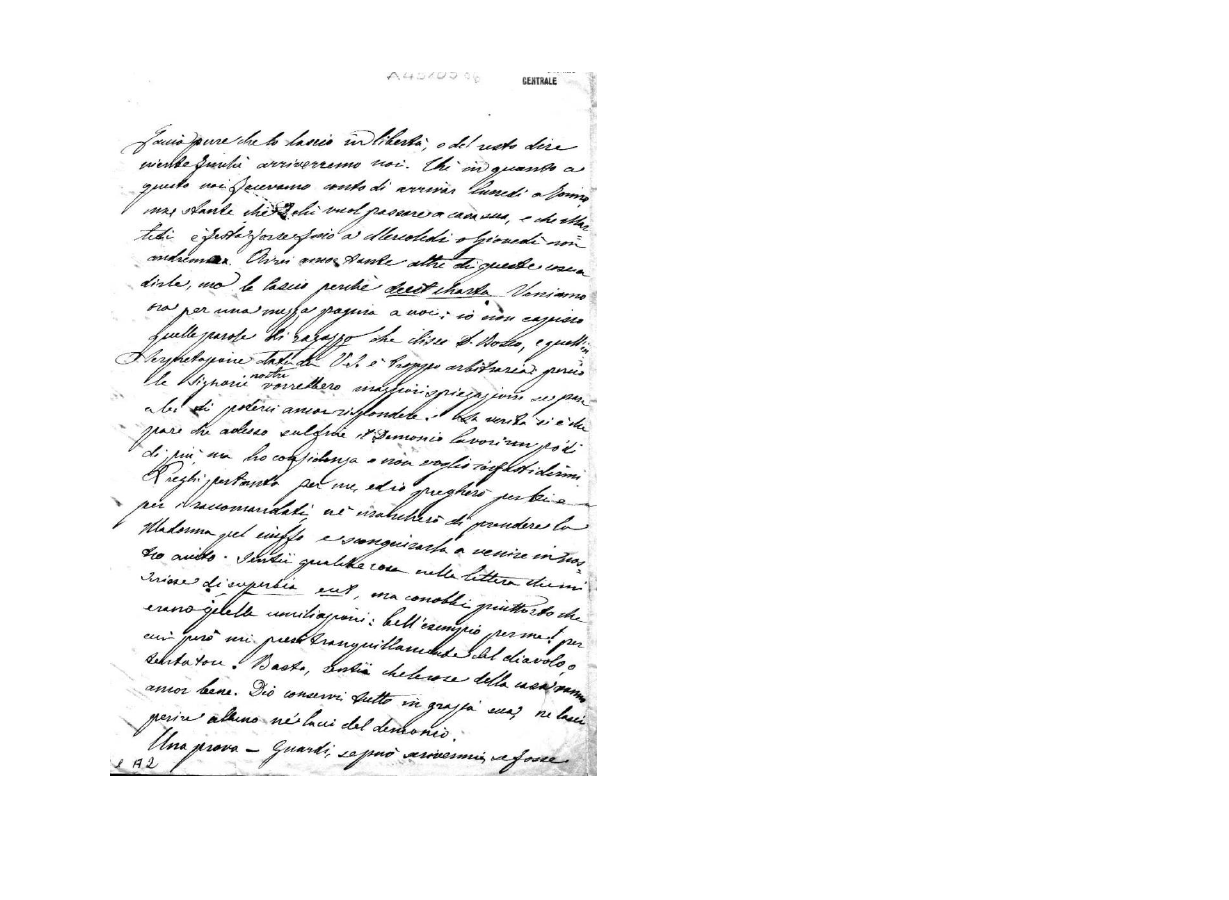 A4510506
CENTRALE
Faccia pure che lo lascio in libertà, e del resto dire
niente finché arriveremo noi. Chi in quanto a
questo noi facevamo conto di arrivar lunedì a Torino,
ma, stante che vuol passare a casa sua, e che
è festa forse fino a Mercoledì o Giovedì non
andremo. Avrei ancor tante altre di queste cose a
dirle, ma le lascio perché deest charta. Veniamo
ora per una mezza pagina a voi: io non capisco
quelle parole di ragazzo che disse D. Bosco, e quell'in-
terpretazione data da V. S. è troppo arbitraria: perciò
le Signorie nostre vorrebbero maggiori spiegazioni se pur
di poterci ancor rispondere. La verità si è che
pare che adesso sul fine il Demonio lavori un po' di
di più ma ho confidenza e non voglio infastidirmi
Preghi pertanto per me, ed io pregherò per lei e
per i raccomandati, né mancherò di prendere la
Madonna pel ciuffo e scongiurarla a venire in nos-
tro aiuto. Sentii qualche cosa nella lettera che mi
scrisse di superbia ect, ma conobbi piuttosto che
erano quelle umiliazioni: bell'esempio per me! per
cui però mi tranquillamente del diavolo, o
tentatore. Basta, sentii che le cose della casa vanno
ancor bene. Dio conservi tutto in grazia sua, né lasci
perire alcuno ne' lacci del demonio.
Una prova — Guardi, se può scrivermi, se fosse
A2